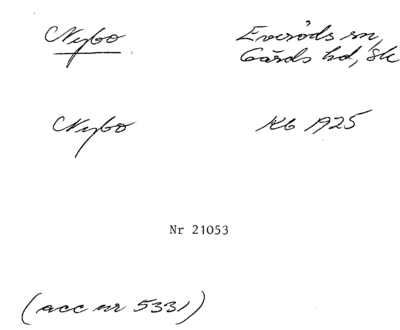 Nybo Everöds sn,
Gärds hd, Sk
Nybo Kb 1925
Nr 21053
(acc nr 5331)